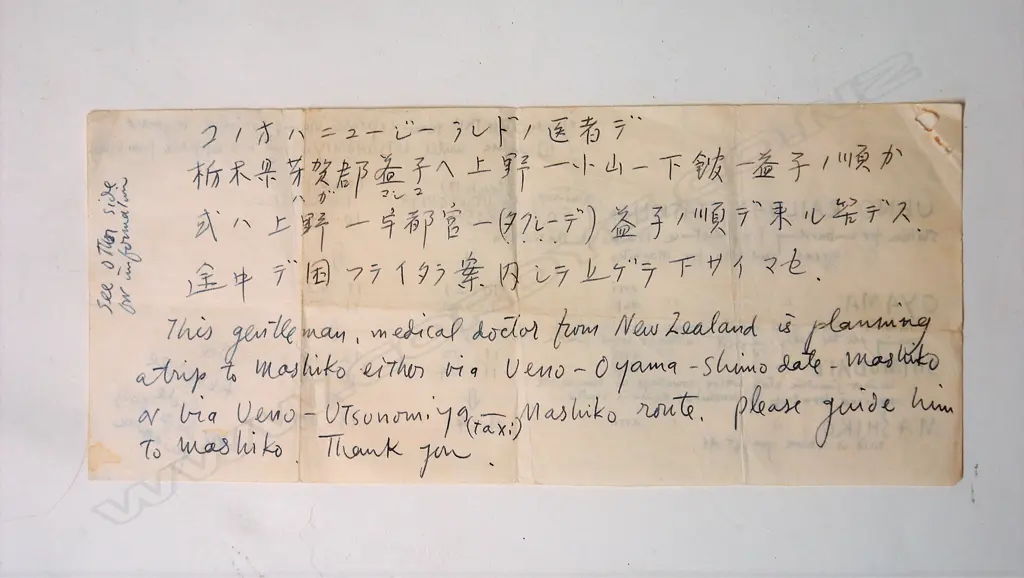 コノ方ハニュージーランドノ医者デ
栃木県芳賀郡益子ヘ上野ー小山ー下館ー益子ノ順か
ハガ マシコ
或ハ上野ー宇都宮ー(タクシーデ)益子ノ順デ乗ル筈デス.
途中デ困ッテイタラ案内シテ上ゲテ下サイマセ.
See other side
for information
This gentleman, medical doctor from New Zealand is planning
a trip to Mashiko either via Ueno-Oyama-Shimodate-Mashiko
or via Ueno-Utsunomiya (taxi) Mashiko route. Please guide him
to Mashiko. Thank you.